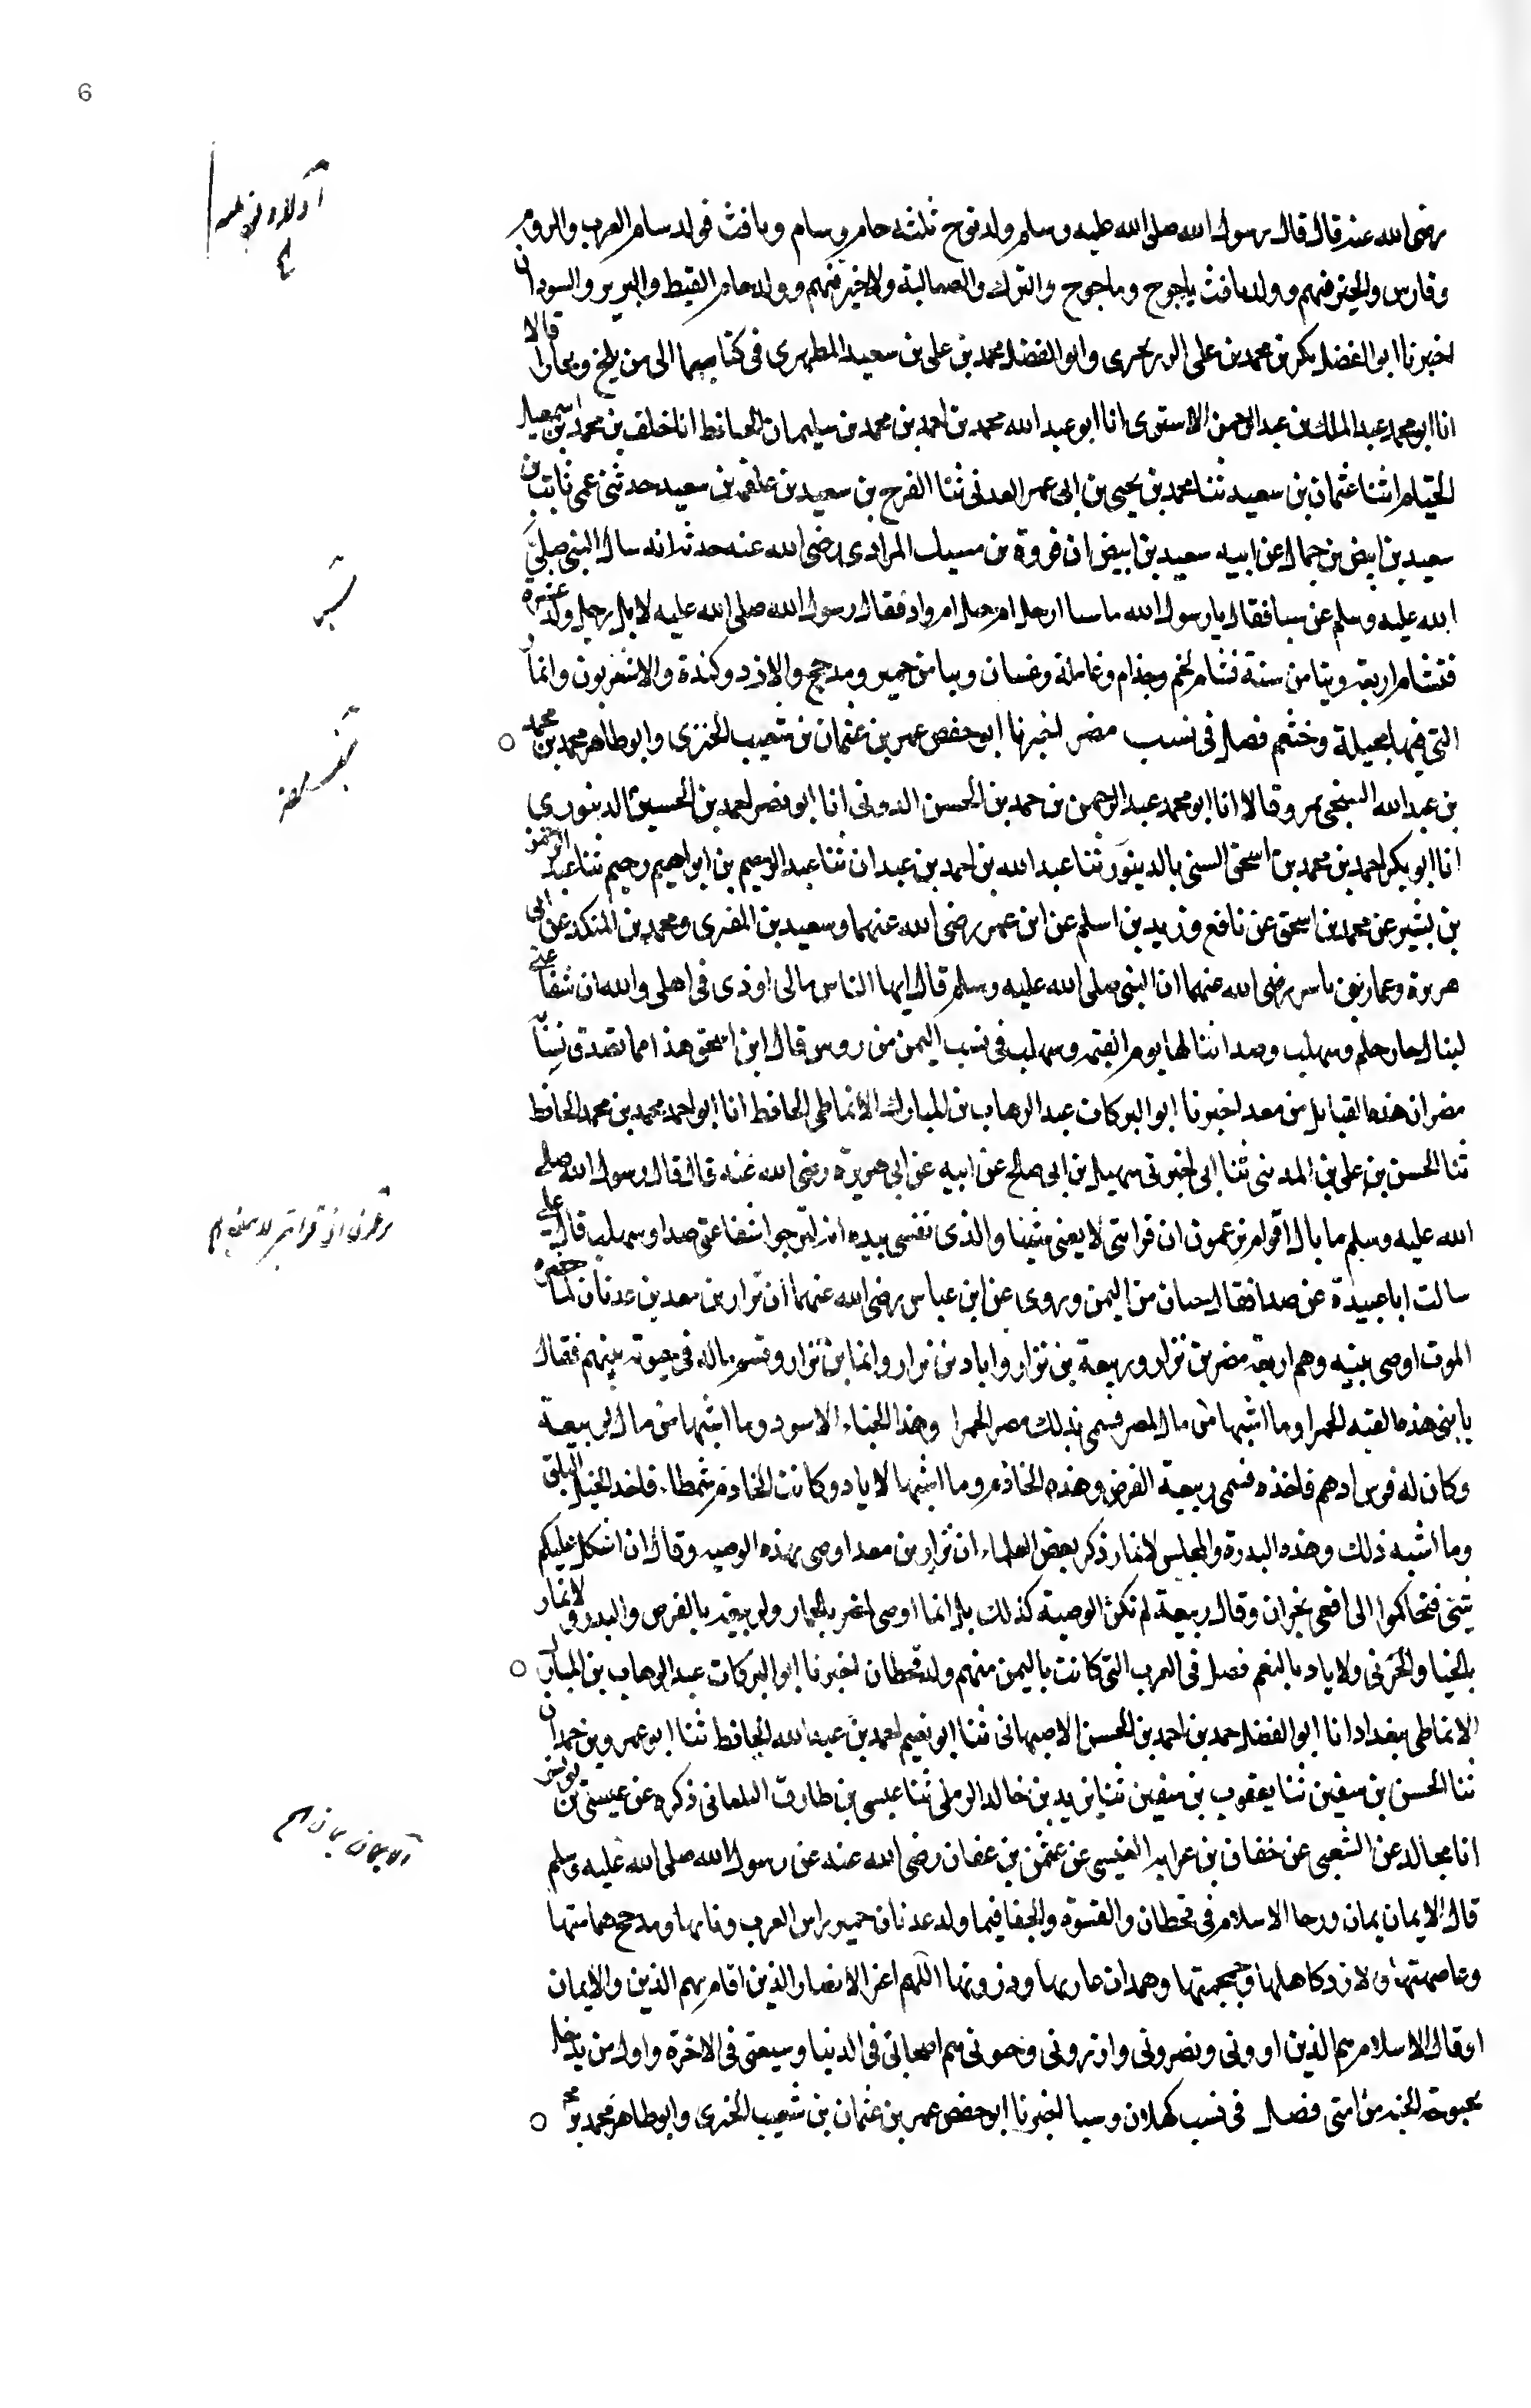 6
رضى الله عنه قال قال رسول الله صلى الله عليه وسلم ولد نوح ثلثه حام وسام ويافث فولد سام العرب والروم
وفارس والخير فيهم وولد يافث ياجوج وماجوج والترك والصقالبة ولا خير فيهم وولد حام القبط والبربر والسودان
اخبرنا ابو الفضل بكر بن محمد بن على الزرنجرى وابو الفضل محمد بن على بن سعيد المطهرى فى كتابيهما الى من بلخ وبخارا قالا
انا ابو محمد عبد الملك بن عبد الرحمن انا ابو عبد الله محمد بن احمد بن محمد بن سليمان الحافظ انا خلف بن محمد بن اسمعيل
الخيام ثنا عثمان بن سعيد ثنا محمد بن يحيى بن ابى عمر العدنى ثنا الفرج بن سعيد بن علقمه بن سعيد حدثنى عمى ثابت بن
سعيد بن ابيض بن حمال عن ابيه سعيد بن ابيض ان فروة بن مسيك المرادى رضى الله عنه حدثه انه سال النبى صلى
الله عليه وسلم عن سبا فقال يا رسول الله ما سبا ارجل ام جبل ام واد فقال رسول الله صلى الله عليه لا بل رجل ولد عشرة
فتشام اربعة وتيامن ستة فتشام لخم وجذام وعاملة وغسان وتيامن حمير ومذحج والازد وكندة والاشعريون وانمار
التى فيها بجيلة وخثعم فصل فى نسب مضر اخبرنا ابو حفص عمر بن عثمان بن شعيب الجنزى وابو طاهر محمد بن محمد
بن عبد الله السنجى بمرو قالا انا ابو محمد عبد الرحمن بن حمد بن الحسن الدونى انا ابو نصر احمد بن الحسين الدينورى
انا ابو بكر احمد بن محمد بن اسحق السنى بالدينور ثنا عبد الله بن احمد بن عبدان ثنا عبد الرحيم بن ابراهيم دحيم ثنا عبد الرحمن
بن بشير عن محمد بن اسحق عن نافع وزيد بن اسلم عن ابن عمر رضى الله عنهما وسعيد بن المقبرى ومحمد بن المنكدر عن ابى
هريرة وعمار بن ياسر رضى الله عنهما ان النبى صلى الله عليه وسلم قال ايها الناس مالى اوذى فى اهلى والله ان شفاعتى
لينال حاء وحكم وسلهب وصدا تنالها يوم القيمه وسلهب فى نسب اليمن من دوس قال ابن اسحق هذا مما تصدق نساب
مضر ان هذه القبايل من معد اخبرنا ابو البركات عبد الوهاب بن المبارك الانماطى الحافظ انا ابو احمد محمد بن محمد الحافظ
ثنا الحسن بن على بن المدينى ثنا ابى اخبرنى سهيل بن ابى صالح عن ابيه عن ابى هريرة رضى الله عنه قال قال رسول الله صلى
الله عليه وسلم ما بال اقوام يزعمون ان قرابتى لا يغنى شيئا والذى نفسى بيده انه لترجوا شفاعتى صدا وسلهب قال على
سالت ابا عبيدة عن صدا فقال حيان من اليمن وروى عن ابن عباس رضى الله عنهما ان نزار بن معد بن عدنان لما حضره
الموت اوصى بنيه وهم اربعه مضر بن نزار وربيعة بن نزار واياد بن نزار وانمار بن نزار وقسم ماله فى حيوته بينهم فقال
يا بنى هذه القبه الحمرا وما اشبهها من مال لمضر فسمى بذلك مضر الحمرا وهذا الخباء الاسود وما اشبهها من مال لربيعة
وكان له فرس ادهم فاخذه فسمى ربيعة الفرس وهذه الخادم وما اشبهها لاياد وكانت الخادم شمطاء فاخذ الخيل البلق
وما اشبه ذلك وهذه البدرة والمجلس لانمار ذكر بعض العلماء ان نزار بن معد اوصى بهذه الوصيه وقال ان اشكل عليكم
شئ فتحاكموا الى افعى نجران وقال ربيعة لم تكن الوصية كذلك بل انما اوصى لمضر بالحمار ولربيعة بالفرس والبدر ولانمار
بالخبا والخرثى ولاياد بالنعم فصل فى العرب التى كانت باليمن منهم ولد قحطان اخبرنا ابو البركات عبد الوهاب بن المبارك
الانماطى ببغداد انا ابو الفضل حمد بن احمد بن الحسن الاصبهانى ثنا ابو نعيم احمد بن عبد الله الحافظ ثنا ابو عمرو بن حمدان
ثنا الحسن بن سفين ثنا يعقوب بن سفين ثنا يزيد بن خالد الرملى ثنا عيسى بن طارق ذكره عن عيسى بن يونس
انا مجالد عن الشعبى عن خفاف بن عرابه العنسى عن عثمن بن عفان رضى الله عنه عن رسول الله صلى الله عليه وسلم
قال الايمان يمان ورحا الاسلام فى قحطان والقسوة والجفا فيما ولد عدنان حمير راس العرب ونابها ومذحج هامتها
وعاصمتها والازد كاهلها وجمجمتها وهمدان غاربها وذروتها اللهم اعز الانصار الذين اقام بهم الدين والايمان
او قال الاسلام هم الذين اوونى ونصرونى وازرونى وحمونى هم اصحابى فى الدنيا وشيعتى فى الاخرة واول من يدخل
بحبوحة الجنه من امتى فصل فى نسب كهلان وسبا اخبرنا ابو حفص عمر بن عثمان بن شعيب الجنزى وابو طاهر محمد بن